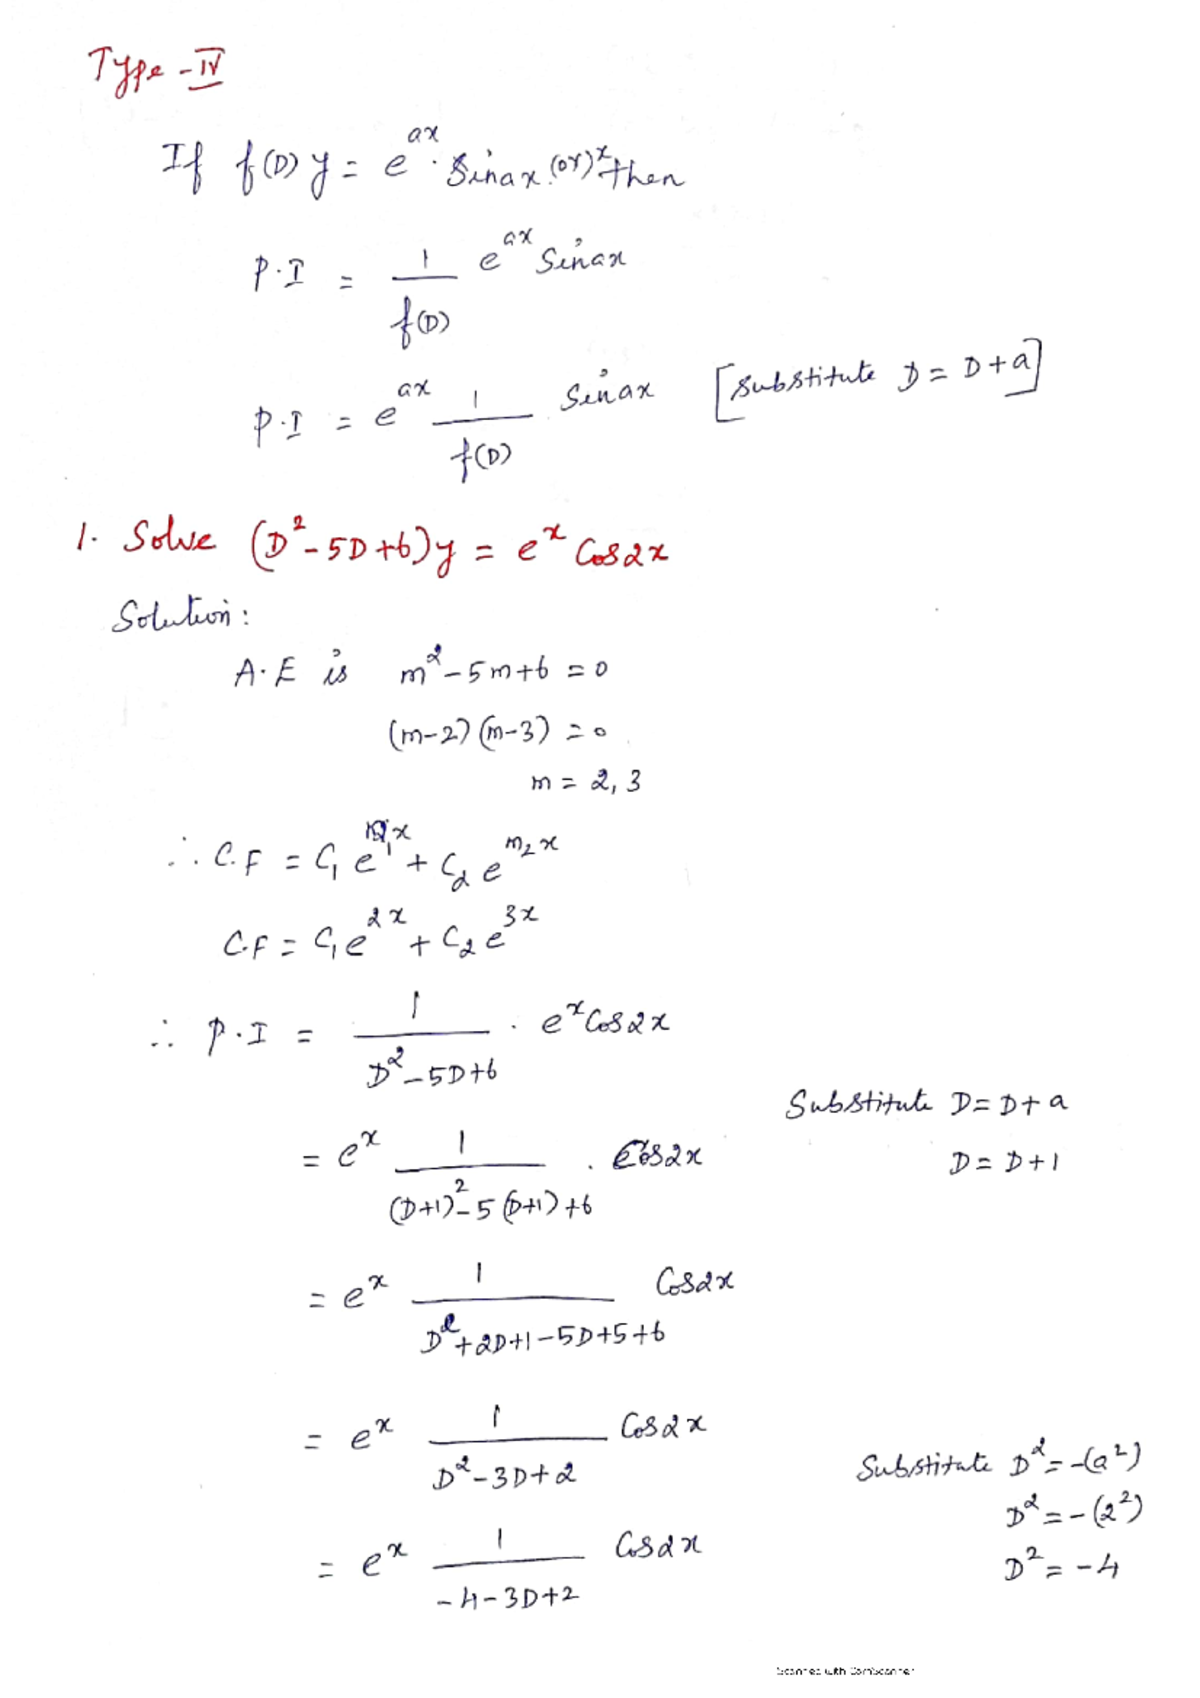 Type - IV
If f(D) y = e^{ax} . Sinax (or) x then
P.I = 1/f(D) e^{ax} Sinax
P.I = e^{ax} 1/f(D) Sinax [Substitute D = D+a]
1. Solve (D²-5D+6)y = e^x Cos2x
Solution:
A.E is m²-5m+6 = 0
(m-2)(m-3) = 0
m = 2, 3
∴ C.F = C₁ e^{m₁x} + C₂ e^{m₂x}
C.F = C₁e^{2x} + C₂e^{3x}
∴ P.I = 1/(D²-5D+6) . e^x Cos2x
Substitute D = D+a
= e^x 1/((D+1)²-5(D+1)+6) . Cos2x
D = D+1
= e^x 1/(D²+2D+1-5D+5+6) Cos2x
= e^x 1/(D²-3D+2) Cos2x
Substitute D² = -(a²)
D² = -(2²)
= e^x 1/(-4-3D+2) Cos2x
D² = -4
Scanned with CamScanner